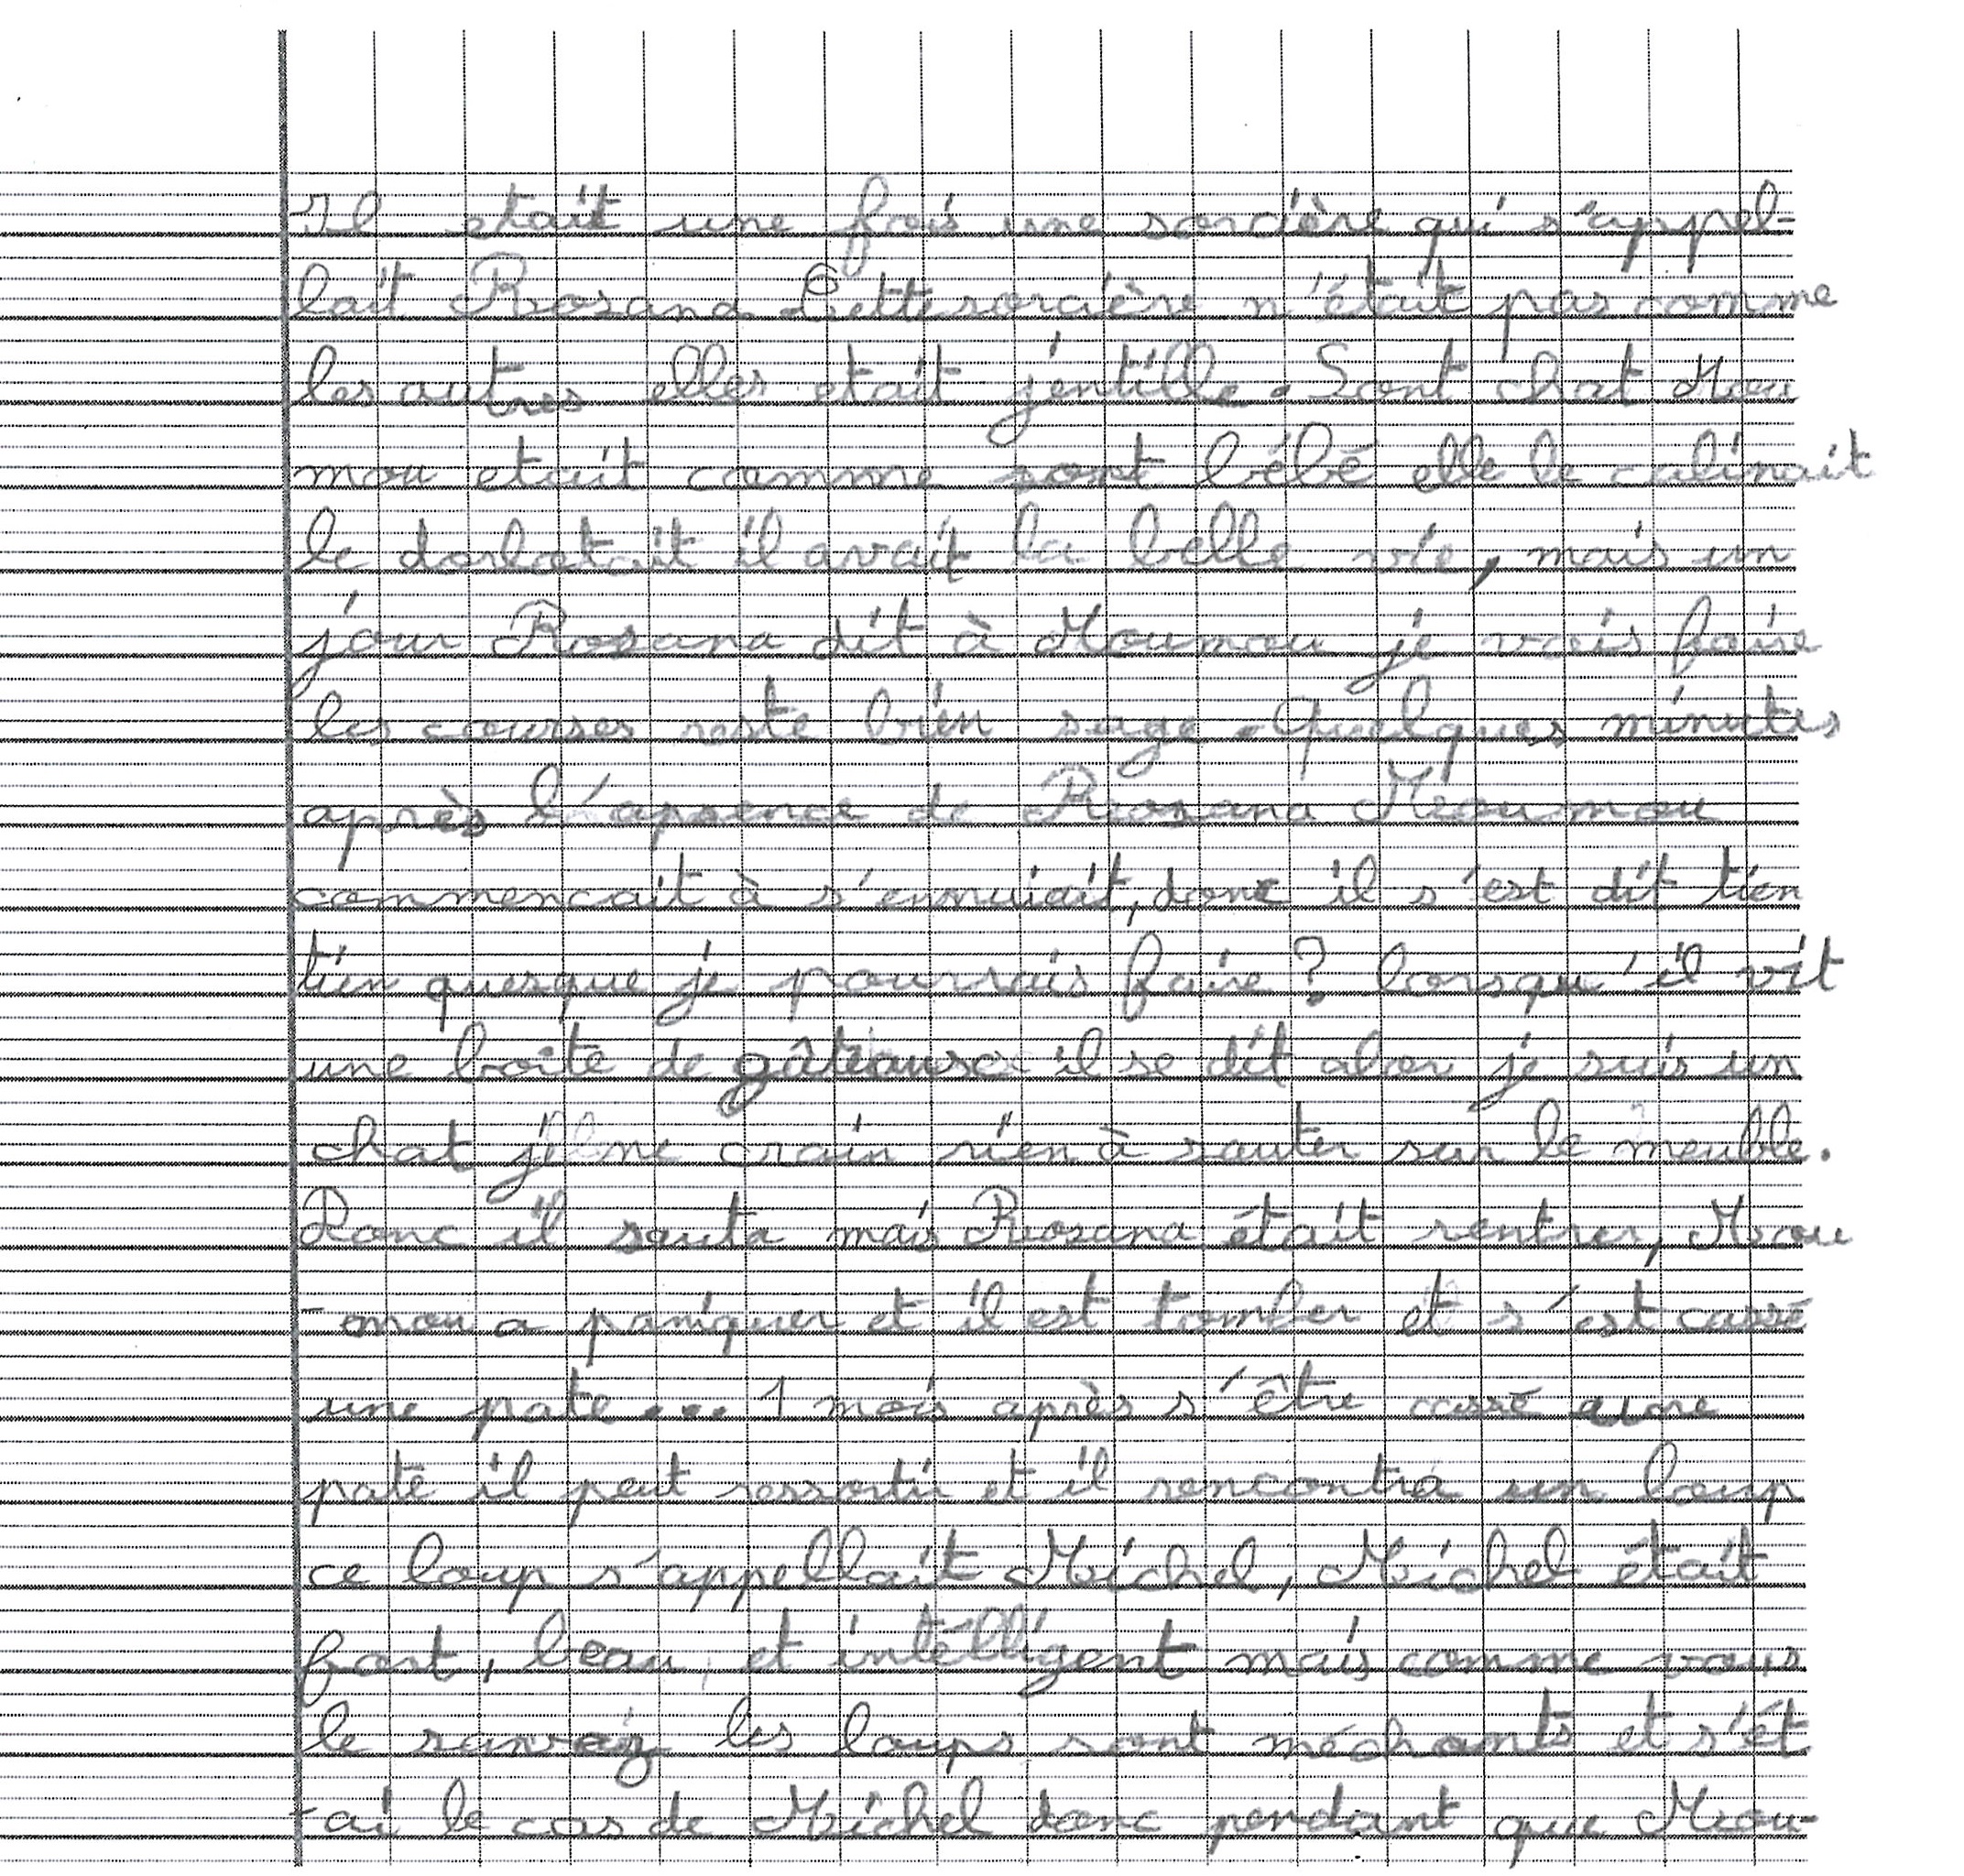 Il etait une fois une sorcière qui s'appel-
lait Rosana. Cette sorcière n'était pas comme
les autres elles etait jentille. Sont chat Mou
mou etait comme sont bébé elle le calinait
le dorlotait il avait la belle vie, mais un
jour Rosana dit à Moumou je vais faire
les courses reste bien sage. Quelques minutes
après l'apsence de Rosana Moumou
commencait à s'ennuiait, donc il s'est dit tien
tien quesque je pourrais faire ? lorsqu'il vit
une boite de gâteaux il se dit alor je suis un
chat je ne crain rien à sauter sur le meuble.
Donc il sauta mais Rosana était rentrer, Mou
-mou a paniquer et il est tomber et s'est cassé
une pate... 1 mois après s'être cassé une
pate il peut ressortir et il rencontra un loup
ce loup s'appellait Michel, Michel était
fort, beau, et intélligent mais comme vous
le savez les loups sont méchants et s'ét
-ai le cas de Michel donc pendant que Mou-